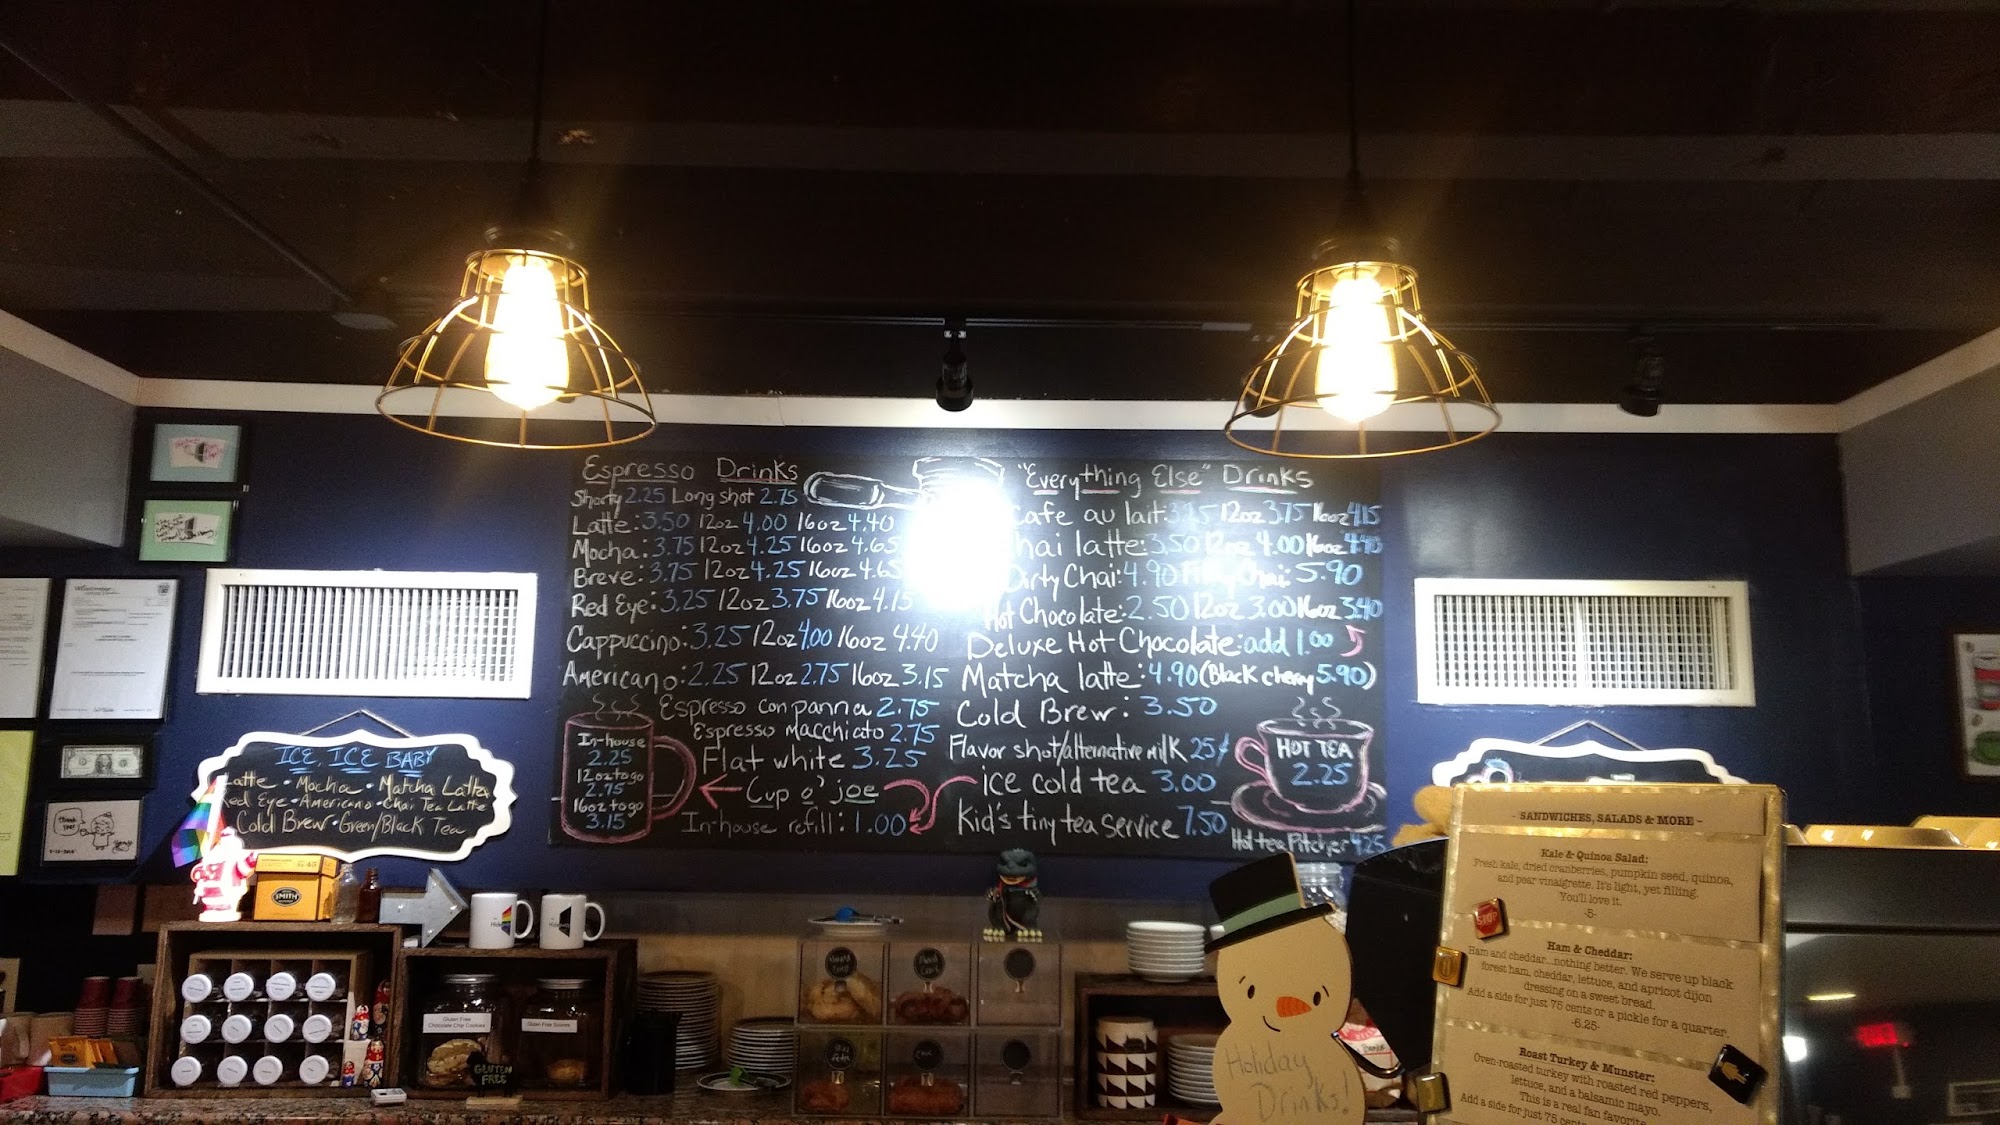 Espresso Drinks
Shorty 2.25 Long shot 2.75
Latte: 3.50 12oz 4.00 16oz 4.40
Mocha: 3.75 12oz 4.25 16oz 4.65
Breve: 3.75 12oz 4.25 16oz 4.65
Red Eye: 3.25 12oz 3.75 16oz 4.15
Cappuccino: 3.25 12oz 4.00 16oz 4.40
Americano: 2.25 12oz 2.75 16oz 3.15
Espresso con panna 2.75
Espresso macchiato 2.75
Flat white 3.25
Cup o' joe
In-house refill: 1.00
In-house
2.25
12oz to go
2.75
16oz to go
3.15
"Everything Else" Drinks
Cafe au lait: 12oz 3.75 16oz 4.15
Chai latte: 3.50 12oz 4.00 16oz 4.40
Dirty Chai: 4.90 Chai: 5.90
Hot Chocolate: 2.50 12oz 3.00 16oz 3.40
Deluxe Hot Chocolate: add 1.00
Matcha latte: 4.90 (Black cherry 5.90)
Cold Brew: 3.50
Flavor shot/alternative milk 25¢
ice cold tea 3.00
Kid's tiny tea service 7.50
HOT TEA
2.25
Hot tea Pitcher 4.25
ICE, ICE BABY
Latte • Mocha • Matcha Latte
Red Eye • Americano • Chai Tea Latte
Cold Brew • Green/Black Tea
SMITH
Gluten Free
Chocolate Chip Cookies
Gluten Free Scones
GLUTEN
FREE
Holiday
Drinks!
- SANDWICHES, SALADS & MORE -
Kale & Quinoa Salad:
Fresh kale, dried cranberries, pumpkin seed, quinoa,
and pear vinaigrette. It's light, yet filling.
You'll love it.
-5-
STOP
Ham & Cheddar:
Ham and cheddar...nothing better. We serve up black
forest ham, cheddar, lettuce, and apricot dijon
dressing on a sweet bread.
Add a side for just 75 cents or a pickle for a quarter.
-6.25-
Roast Turkey & Munster:
Oven-roasted turkey with roasted red peppers,
lettuce, and a balsamic mayo.
This is a real fan favorite.
Add a side for just 75 cents